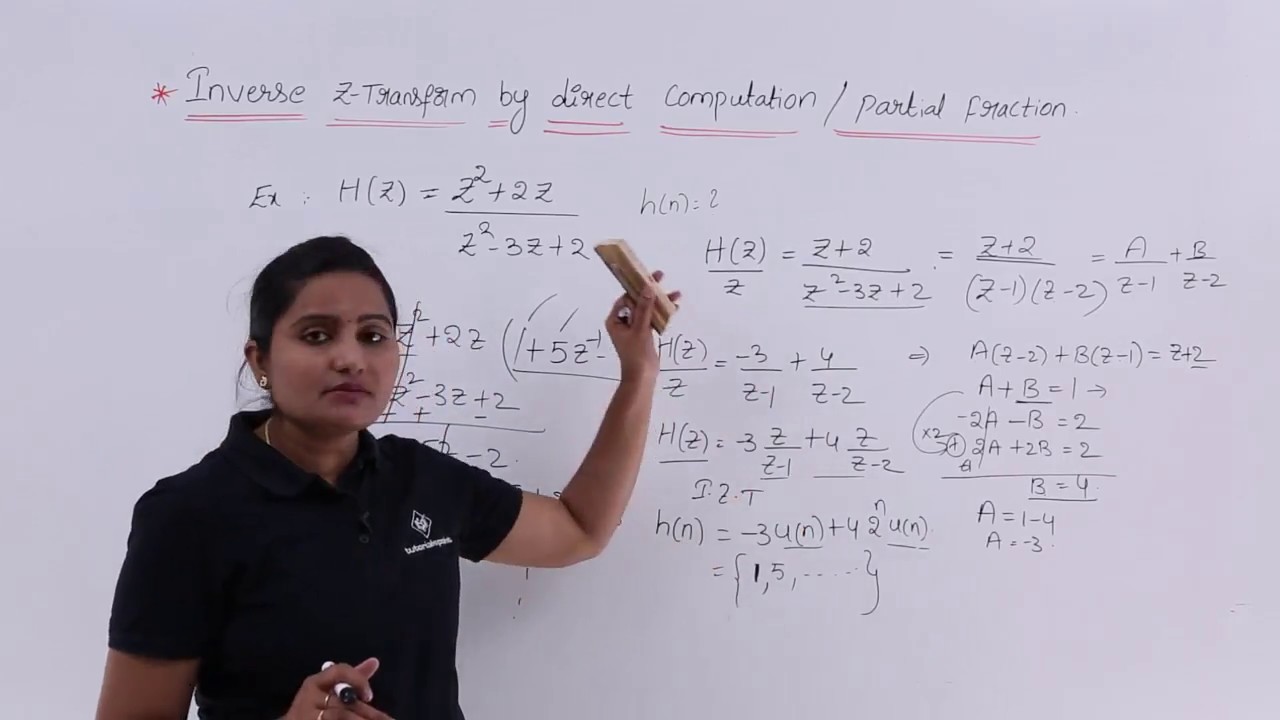 * Inverse Z-Transform by direct Computation / partial fraction.
Ex : H(z) = z²+2z / z²-3z+2
h(n)=?
H(z)/z = z+2 / z²-3z+2 = z+2 / (z-1)(z-2) = A/z-1 + B/z-2
z²+2z (1+5z⁻¹
z²-3z+2
- + -
-2
H(z)/z = -3/z-1 + 4/z-2
⇒ A(z-2)+B(z-1)=z+2
A+B=1→
-2A-B=2
×2 (+) 2A+2B=2
B=4
A=1-4
A=-3.
H(z)= -3 z/z-1 +4 z/z-2
I.Z.T
h(n) = -3u(n)+4 2ⁿu(n).
= {1,5,.....}
tutorialspoint